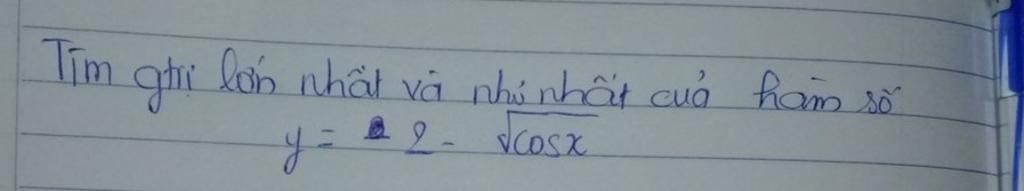 Tìm gtrị lớn nhất và nhỏ nhất cuả hàm số
y = 2 - √cosx